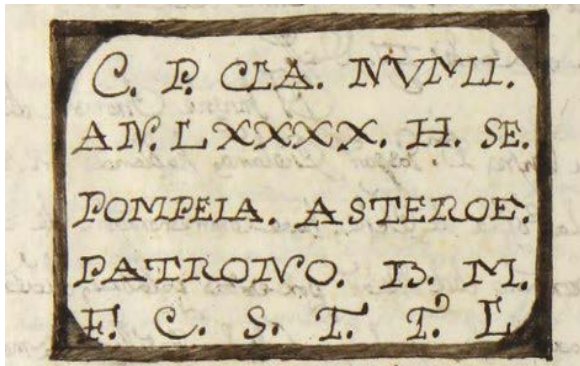 C. P. CLA. NVMII.
AN. LXXXX. H. SE.
POMPEIA. ASTEROE.
PATRONO. B. M.
F. C. S. T. T. L